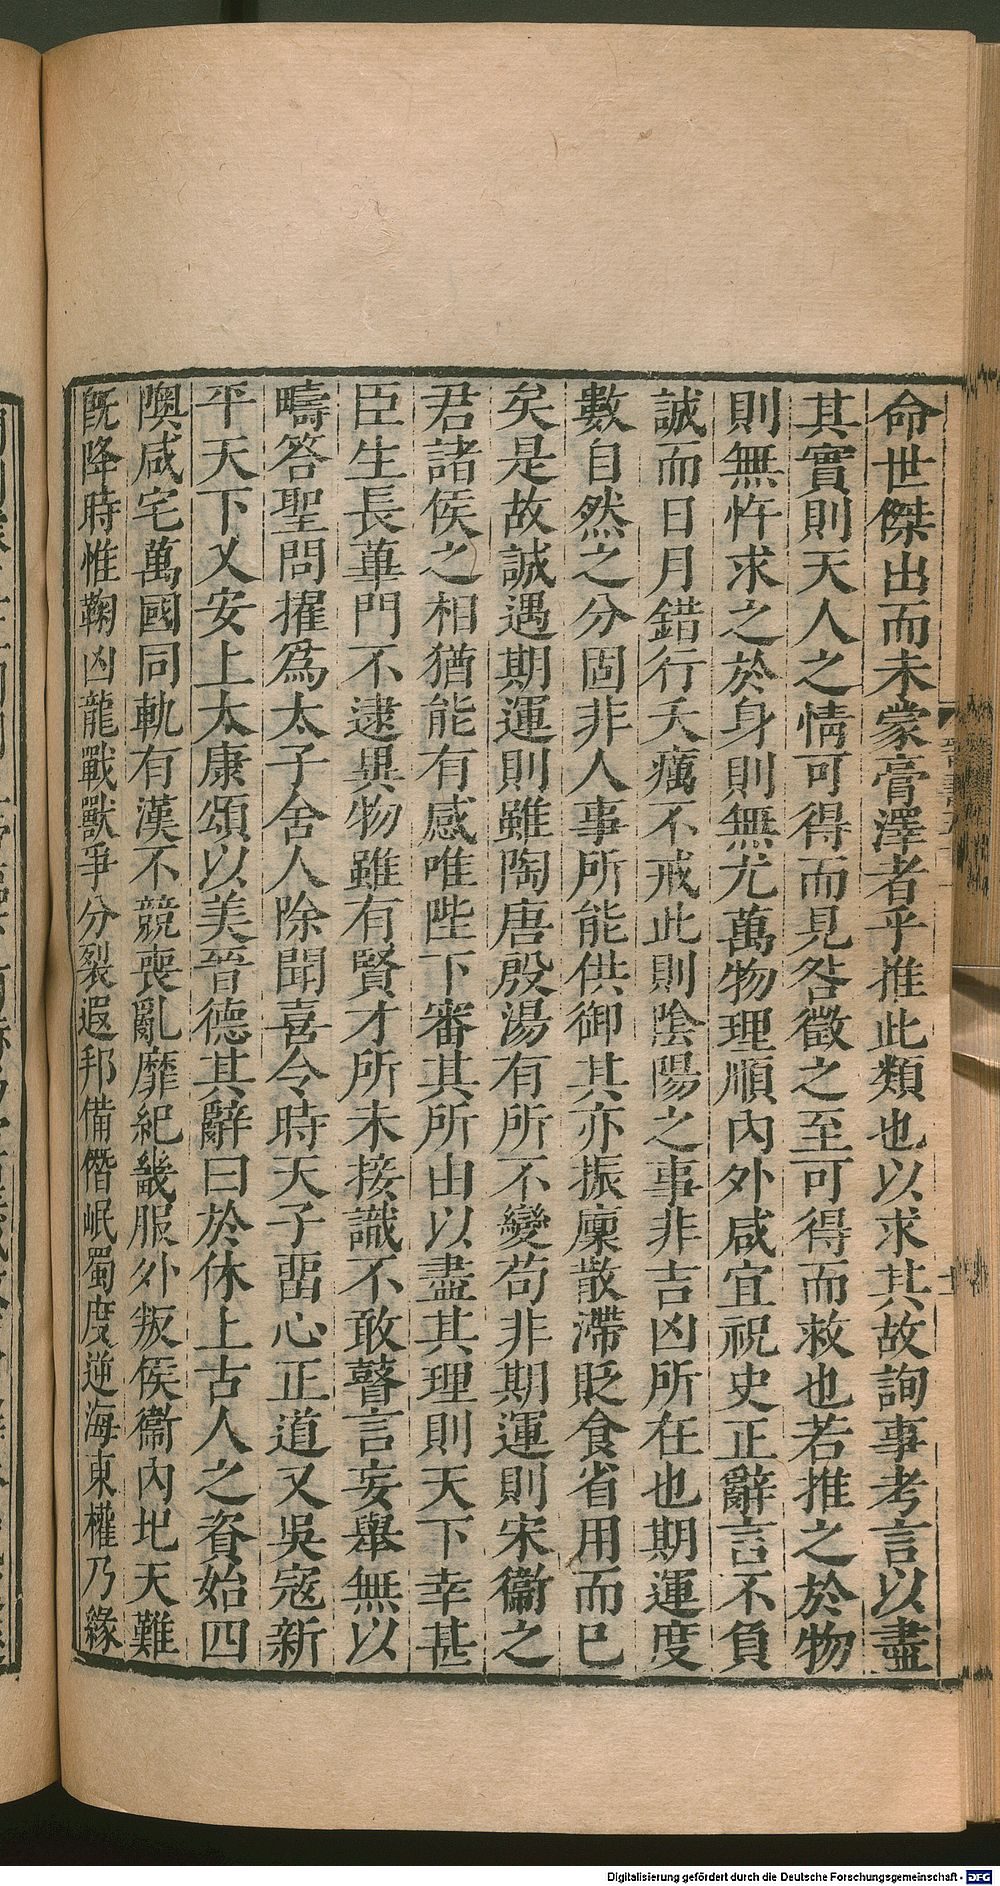 命世傑出而未蒙膏澤者乎推此類也以求其故詢事考言以盡
其實則天人之情可得而見咎徵之至可得而救也若推之於物
則無忤求之於身則無尤萬物理順內外咸宜祝史正辭言不負
誠而日月錯行夭癘不戒此則陰陽之事非吉凶所在也期運度
數自然之分固非人事所能供御其亦振廩散滯貶食省用而已
矣是故誠遇期運則雖陶唐殷湯有所不變苟非期運則宋衞之
君諸侯之相猶能有感唯陛下審其所由以盡其理則天下幸甚
臣生長蓽門不逮異物雖有賢才所未接識不敢瞽言妄舉無以
疇答聖問擢爲太子舍人除聞喜令時天子畱心正道又吳寇新
平天下乂安上太康頌以美晉德其辭曰於休上古人之資始四
隩咸宅萬國同軌有漢不競喪亂靡紀畿服外叛侯衞內圮天難
旣降時惟鞠凶龍戰獸爭分裂遐邦備僭岷蜀度逆海東權乃緣
Digitalisierung gefördert durch die Deutsche Forschungsgemeinschaft - DFG